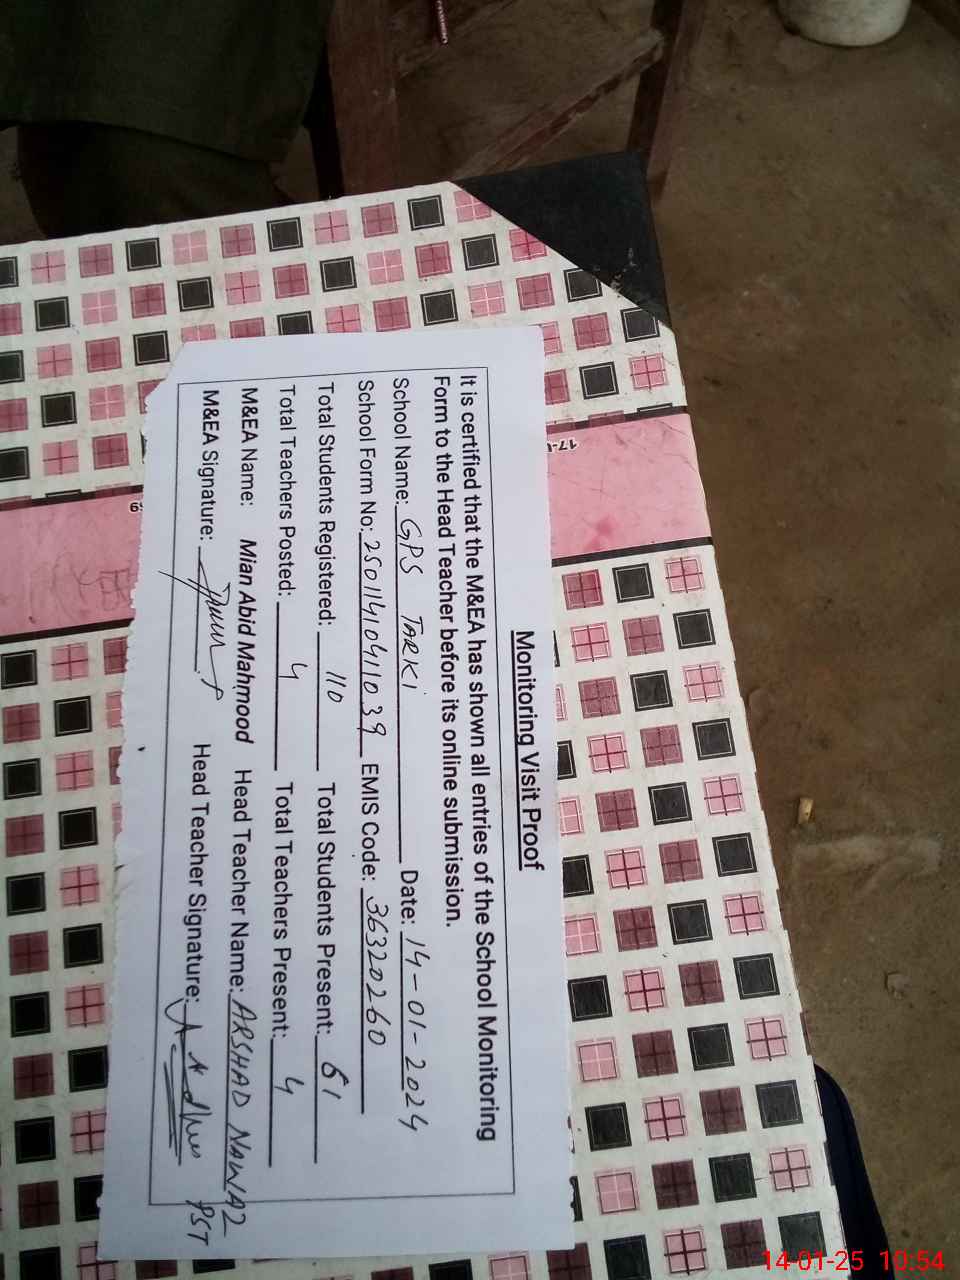 Monitoring Visit Proof
It is certified that the M&EA has shown all entries of the School Monitoring
Form to the Head Teacher before its online submission.
School Name: GPS TARKI Date: 14-01-2024
School Form No: 2501141041039 EMIS Code: 36320260
Total Students Registered: 110 Total Students Present: 61
Total Teachers Posted: 4 Total Teachers Present: 4
M&EA Name: Mian Abid Mahmood Head Teacher Name: ARSHAD NAWAZ
M&EA Signature: Head Teacher Signature: PST
14-01-25 10:54